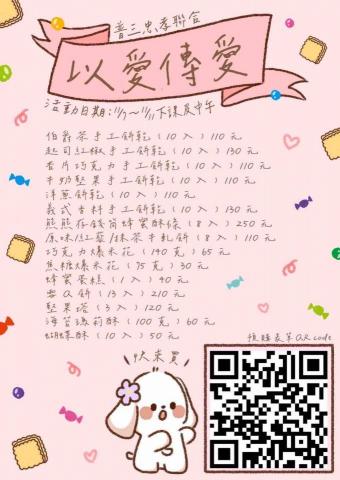 普三忠孝聯合
以愛傳愛
活動日期:11/7~11/11下課及中午
伯爵茶手工餅乾(10入)110元
起司紅椒手工餅乾(10入)130元
香片巧克力手工餅乾(10入)110元
牛奶堅果手工餅乾(10入)110元
洋蔥餅乾(10入)110元
義式香料手工餅乾(10入)130元
熊熊存錢筒蜂蜜酥條(8入)250元
原味/紅藜/抹茶牛軋餅(8入)110元
巧克力爆米花(140克)65元
焦糖爆米花(95克)30元
蜂蜜蛋糕(1入)40元
雪Q餅(13入)210元
堅果塔(3入)120元
海苔瑪莉酥(100克)60元
蝴蝶酥(10入)50元
快來買
預購表單QR code